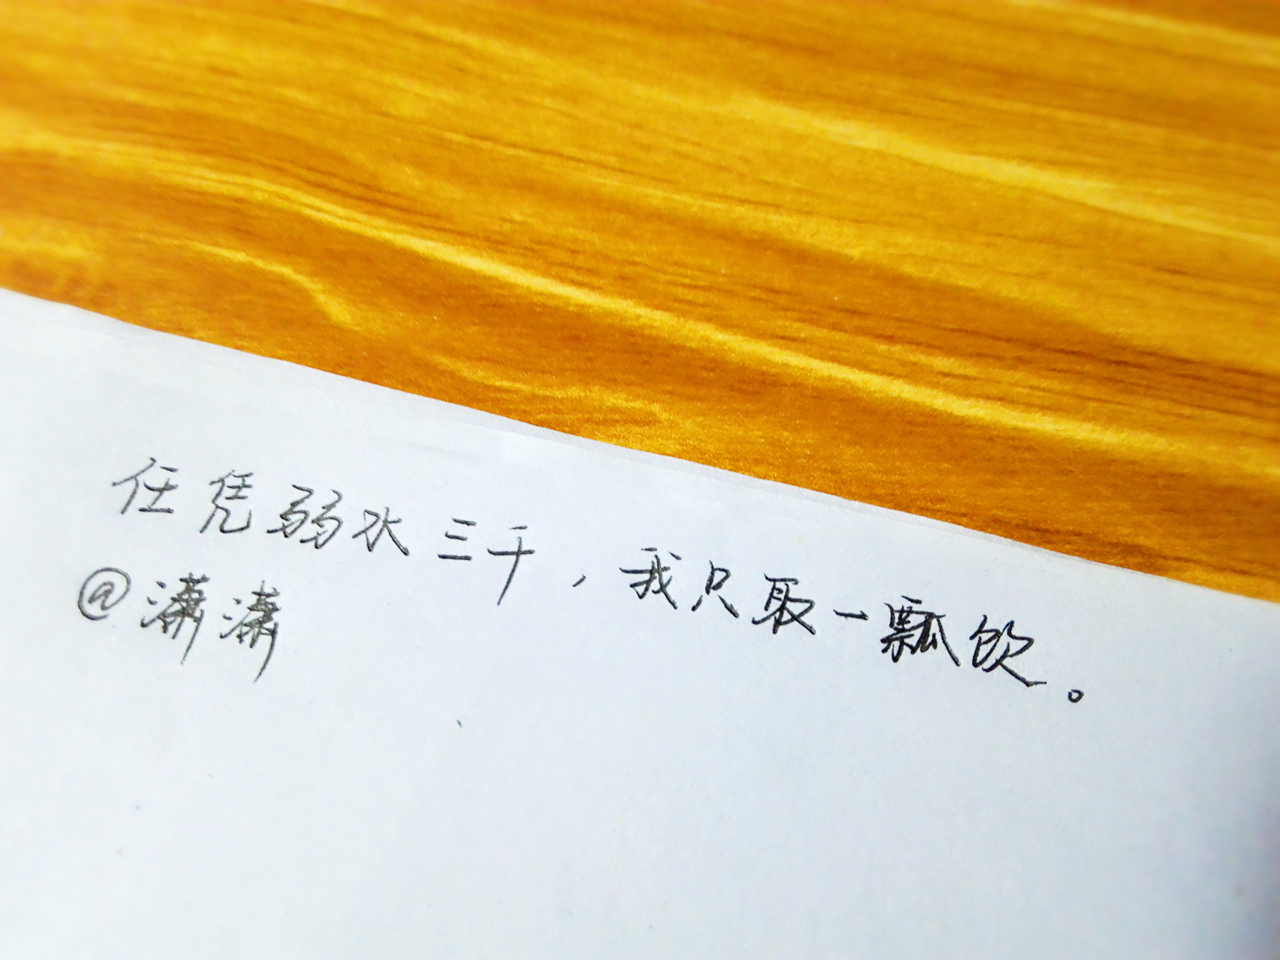 任凭弱水三千，我只取一瓢饮。
@潇潇